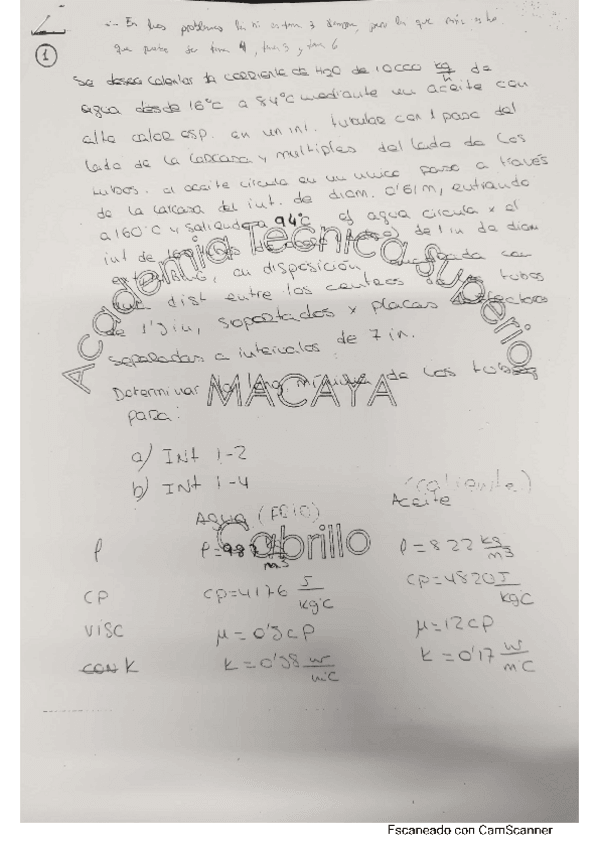 :- En los problemas
que 4, tema 3 y tema 6
1
Se desea calentar la corriente de H2O de 10000 kg/h de
agua desde 16°C a 84°C mediante un aceite con
alto calor esp. en un int. tubular con 1 paso del
lado de la carcasa y multiples del lado de los
tubos. el aceite circula en un unico paso a través
de la carcasa del int. de diam. 0'61m, entrando
a 160°C y saliendo a 94°C el agua circula x el
int de de 1 in de diam
en disposición cuadrada con
una dist entre los centros de los tubos
de 1'3in, soportados x placas deflectoras
separadas a intervalos de 7 in.
Determinar la long. mínima de los tubos
para:
a) INt 1-2
b) INt 1-4
(caliente)
Agua (FRIO) Aceite
ρ ρ=987 kg/m3 ρ=822 kg/m3
CP CP=4176 J/kg°C CP=4820 J/kg°C
VISC μ=0'3CP μ=12CP
K K=0'38 W/m°C K=0'17 W/m°C
Academia Técnica Superior
MACAYA
Cabrillo
Escaneado con CamScanner